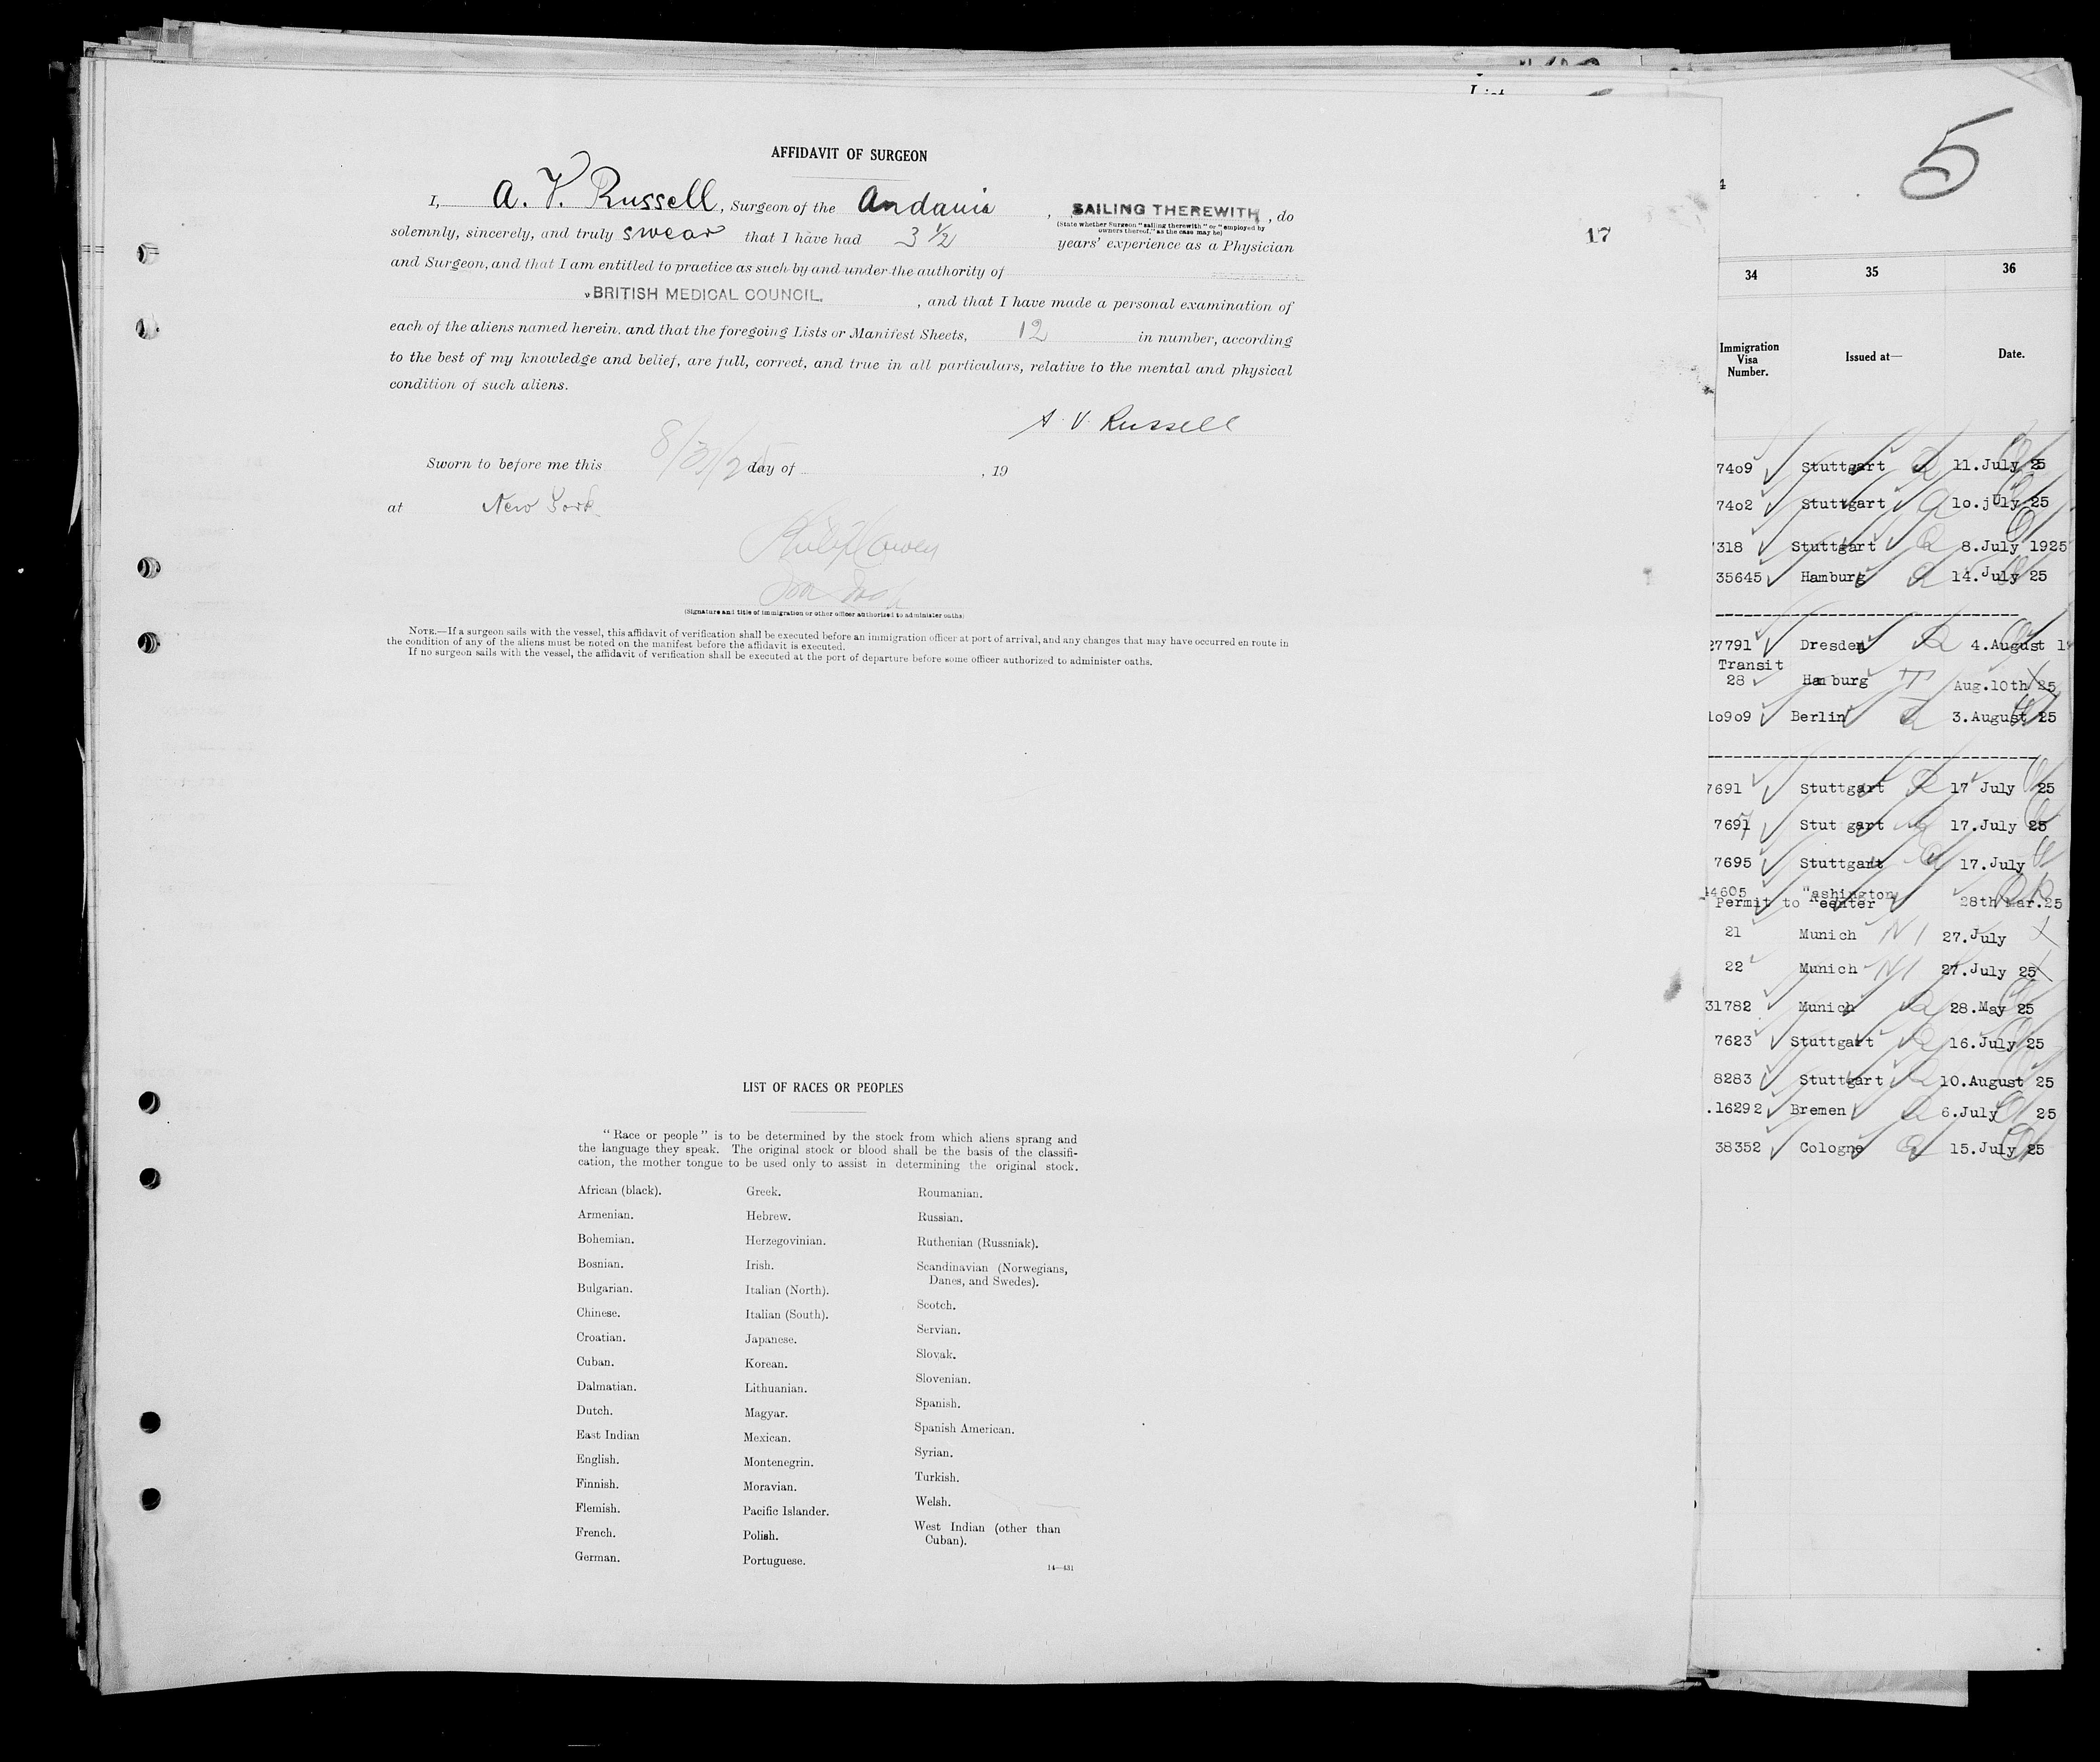 5
17
AFFIDAVIT OF SURGEON
I, A. V. Russell, Surgeon of the Andania, SAILING THEREWITH, do
(State whether Surgeon "sailing therewith" or "employed by
owners thereof," as the case may be)
solemnly, sincerely, and truly swear that I have had 3 ½ years' experience as a Physician
and Surgeon, and that I am entitled to practice as such by and under the authority of
BRITISH MEDICAL COUNCIL, and that I have made a personal examination of
each of the aliens named herein, and that the foregoing Lists or Manifest Sheets, 12 in number, according
to the best of my knowledge and belief, are full, correct, and true in all particulars, relative to the mental and physical
condition of such aliens.
A. V. Russell
Sworn to before me this 8/31/25 day of , 19
at New York
(Signature and title of immigration or other officer authorized to administer oaths)
NOTE.—If a surgeon sails with the vessel, this affidavit of verification shall be executed before an immigration officer at port of arrival, and any changes that may have occurred en route in
the condition of any of the aliens must be noted on the manifest before the affidavit is executed.
If no surgeon sails with the vessel, the affidavit of verification shall be executed at the port of departure before some officer authorized to administer oaths.
LIST OF RACES OR PEOPLES
"Race or people" is to be determined by the stock from which aliens sprang and
the language they speak. The original stock or blood shall be the basis of the classifi-
cation, the mother tongue to be used only to assist in determining the original stock.
African (black).
Armenian.
Bohemian.
Bosnian.
Bulgarian.
Chinese.
Croatian.
Cuban.
Dalmatian.
Dutch.
East Indian
English.
Finnish.
Flemish.
French.
German.
Greek.
Hebrew.
Herzegovinian.
Irish.
Italian (North).
Italian (South).
Japanese.
Korean.
Lithuanian.
Magyar.
Mexican.
Montenegrin.
Moravian.
Pacific Islander.
Polish.
Portuguese.
Roumanian.
Russian.
Ruthenian (Russniak).
Scandinavian (Norwegians,
Danes, and Swedes).
Scotch.
Servian.
Slovak.
Slovenian.
Spanish.
Spanish American.
Syrian.
Turkish.
Welsh.
West Indian (other than
Cuban).
14—431
34 35 36
Immigration
Visa
Number.
Issued at—
Date.
7409 Stuttgart 11.July 25
7402 Stuttgart 10.july 25
318 Stuttgart 8.July 1925
35645 Hamburg 14.July 25
27791 Dresden 4.August
Transit
28 Hamburg Aug.10th 25
10909 Berlin 3.August 25
7691 Stuttgart 17 July 25
7691 Stut gart 17.July 25
7695 Stuttgart 17.July
44605 "ashington
Permit to reenter 28th Mar.25
21 Munich N I 27.July
22 Munich N I 27.July 25
31782 Munich 28.May 25
7623 Stuttgart 16.July 25
8283 Stuttgart 10.August 25
16292 Bremen 6.July 25
38352 Cologne 15.July 25